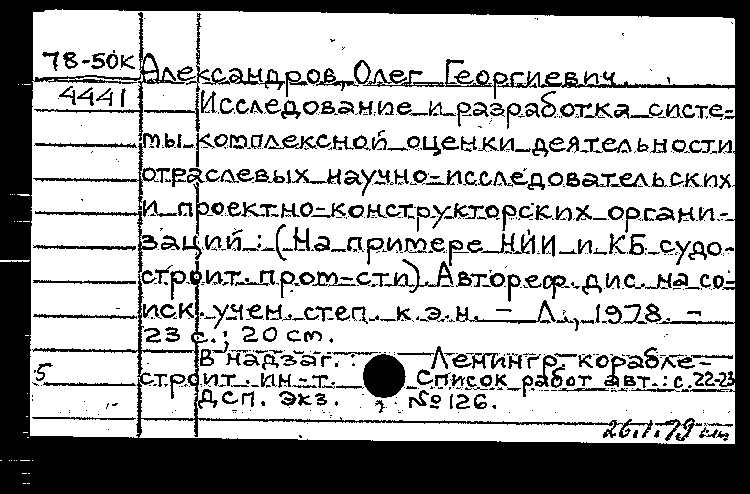 78-50к Александров, Олег Георгиевич.
4441 Исследование и разработка систе-
мы комплексной оценки деятельности
отраслевых научно-исследовательских
и проектно-конструкторских органи-
заций : (На примере НИИ и КБ судо-
строит. пром-сти). Автореф. дис. на со-
иск. учен. степ. к.э.н. – Л., 1978. –
23 с.; 20 см.
В надзаг. : Ленингр. корабле-
5 строит. ин-т. Список работ авт.: с. 22-23
ДСП. Экз. № 126.
26.1.79